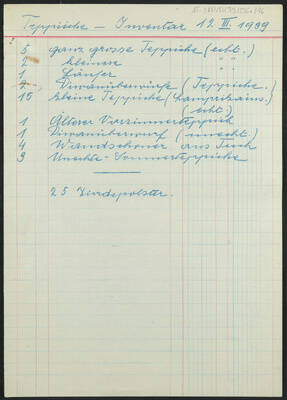 Teppische – Inventar 12. III. 1939
5 ganz grosse Teppiche (echt.)
2 kleinere " "
1 Läufer
2 Divanüberwürfe (Teppiche.)
15 kleine Teppiche
(echt)
1 Älterer Vorzimmerteppich
1 Divanüberwurf (unecht.)
4 Wandschoner aus Tuch
3 Unechte Sommerteppiche
25 Zierpolster.